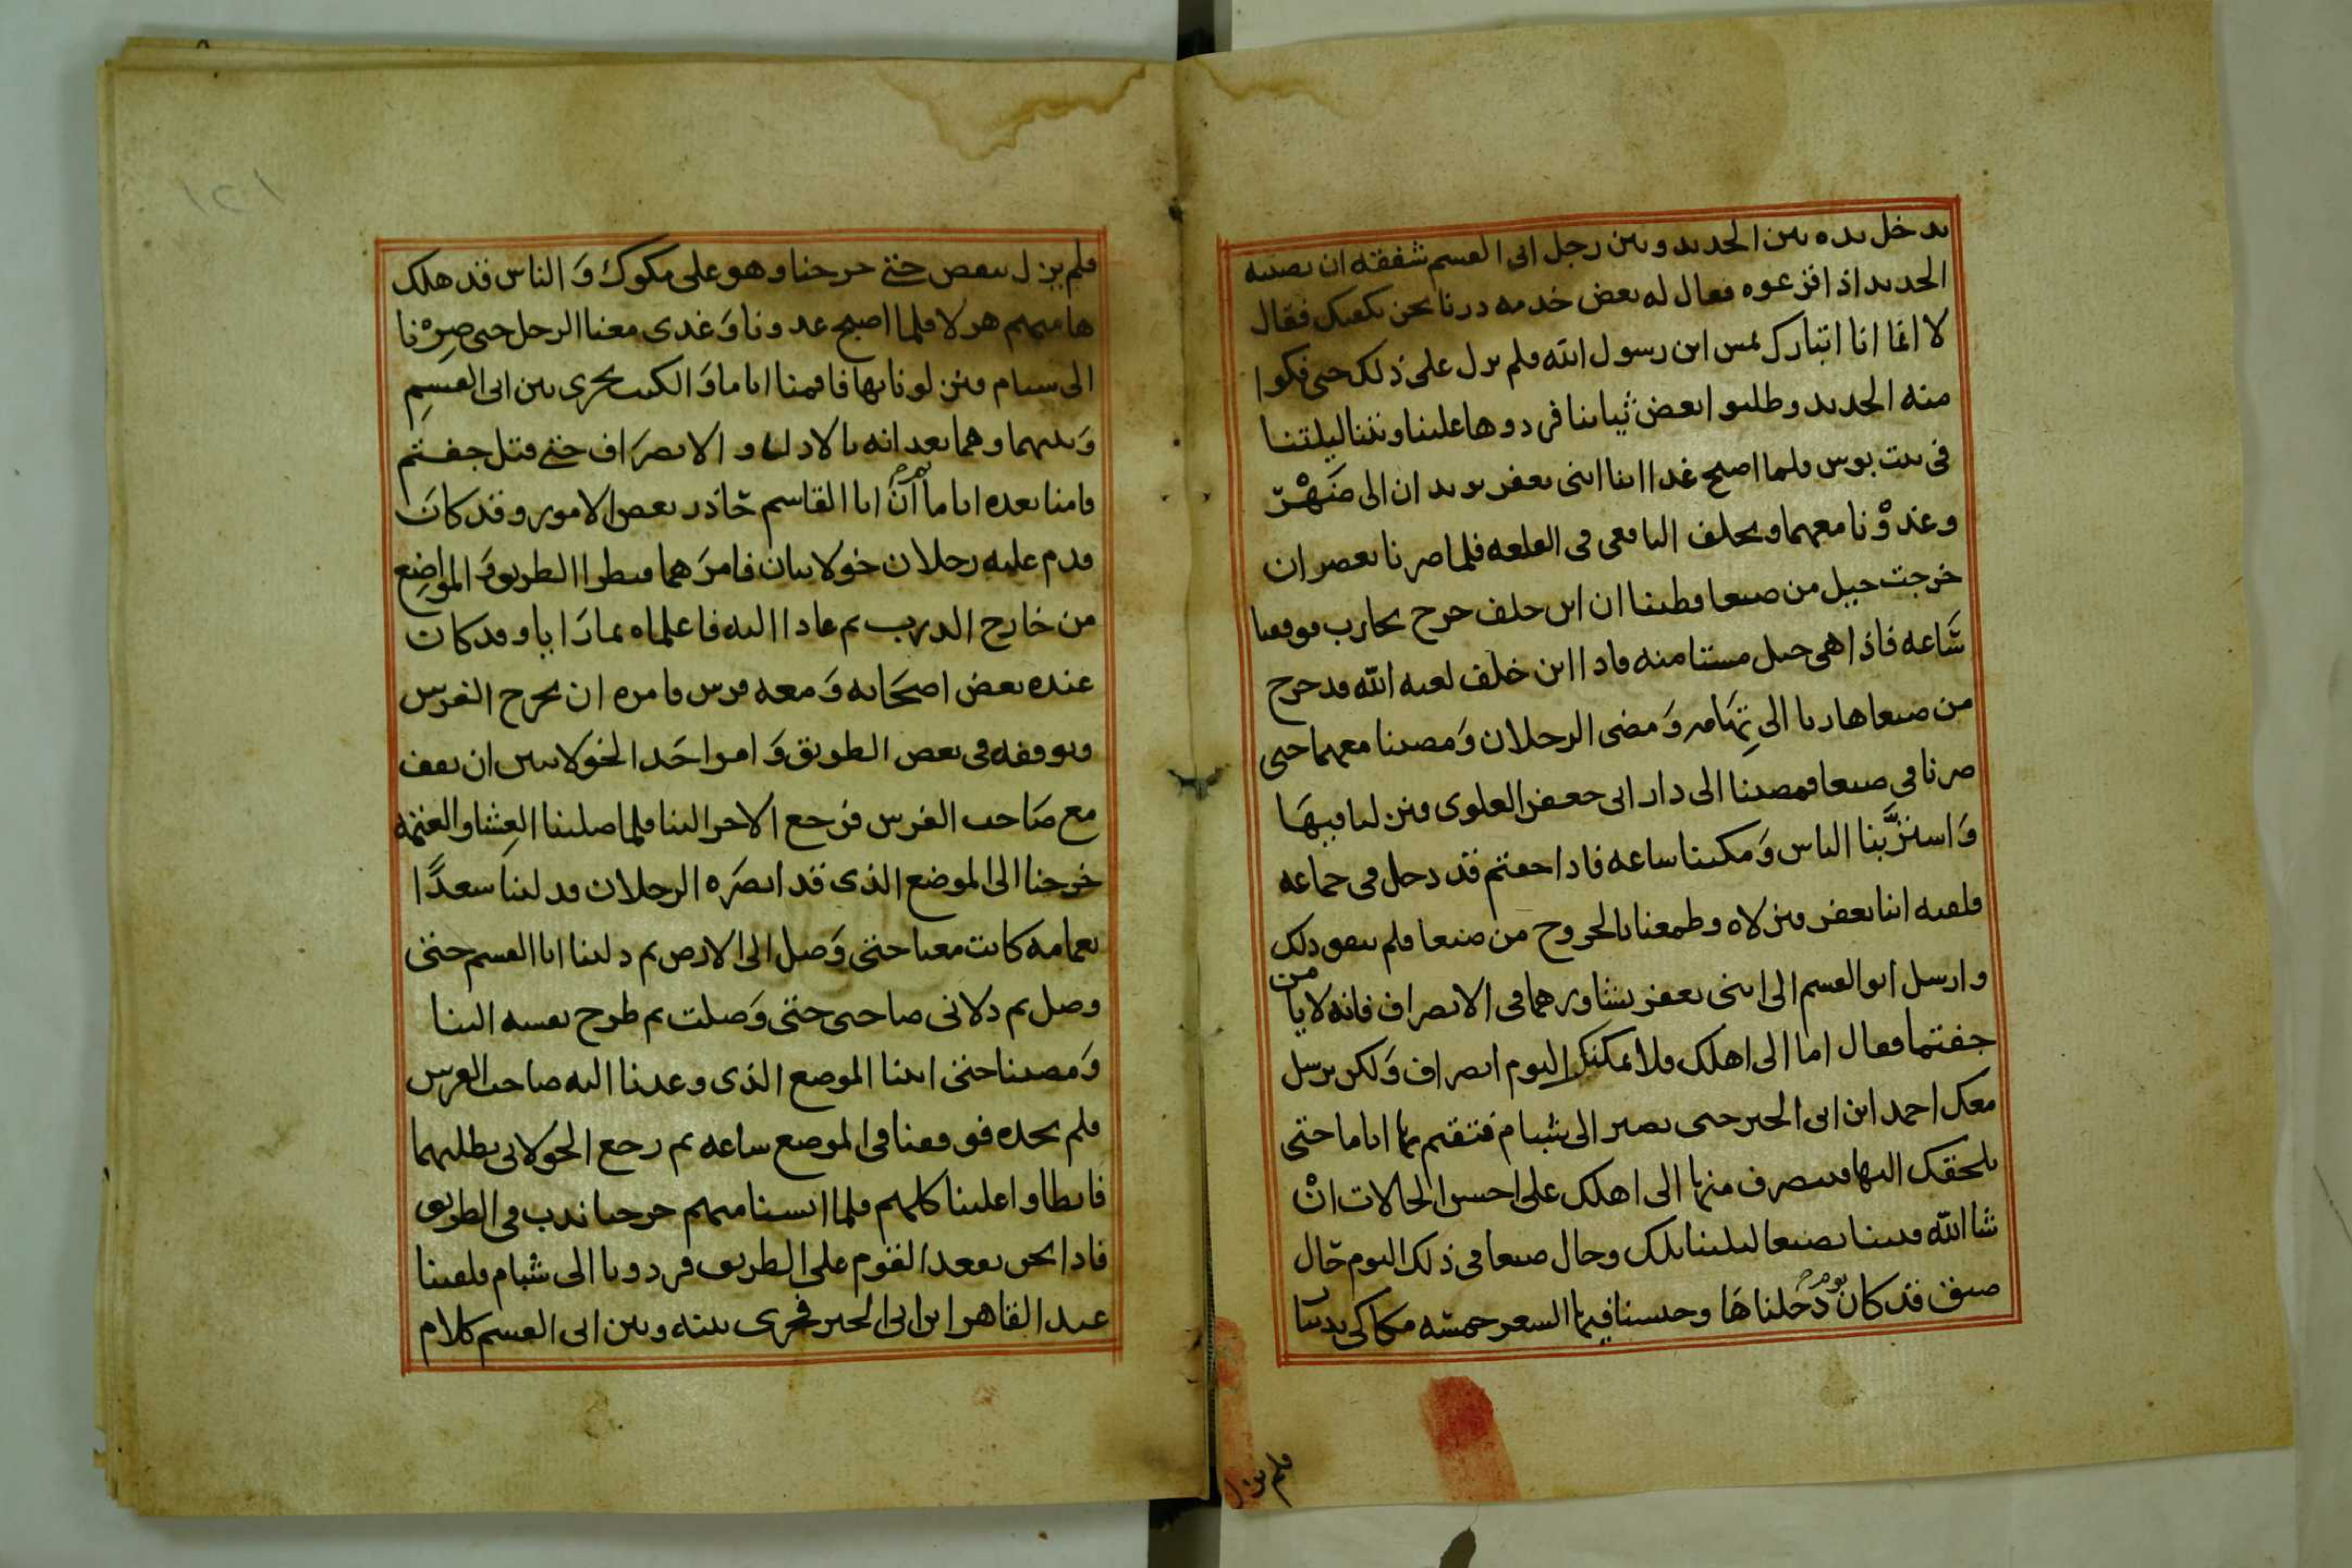 يدخل يده بين الحديد وبين رجل ابي القسم شفقه ان يصيبه
الحديد اذا قزعوه فقال له بعض خدمه درنا نحن نكفيك فقال
لا انما انا اتبارك بمس ابن رسول الله فلم يزل على ذلك حتى فكوا
منه الحديد وطلبوا بعض ثيابنا فردوها علينا وبتنا ليلتنا
في بيت بوس فلما اصبح غدا ابنا ابني يعفر يريدان الى ضَهْر
وغدوْنا معهما وتخلف اليافعي في القلعه فلما صرنا بعصر ان
خرجت خيل من صنعا وظننا ان ابن خلف خرج يحارب فوقفنا
سَاعه فاذا هي خيل مستامنه فاذا ابن خلف لعنه الله قد خرج
من صنعا هاربا الى تِهَامه وَمضى الرجلان وَمضينا معهما حتى
صرنا في صنعا فمضينا الى دار ابي جعفر العلوي فنزلنا فيهَا
الناس وَمكثنا ساعه فاذا جفتم قد دخل في جماعه
فلقيه ابنا يعفر فنزلاه وطمعنا بالخروج من صنعا فلم يتفق ذلك
وارسل ابو القسم الى ابني يعفر يشاورهما في الانصراف فانه لا يامن
جفتما فقال اما الى اهلك فلا يمكنك اليوم انصراف وَلكن نرسل
معك احمد ابن ابي الخير حتى تصير الى شبام فتقيم بها اياما حتى
نلحقك اليها فتنصرف منها الى اهلك على احسن الحالات انْ
شا الله فبتنا بصنعا ليلتنا تلك وحال صنعا في ذلك اليوم حَال
ضيق قد كان يوم دخلناهَا وحبسنا فيها السعر خمسه مكاكي بدينا
فلم يزل
فلم يزل ينقص حتى خرجنا وهو على مكوك وَالناس قد هلك
عامتهم هزلا فلما اصبح غدونا وَغدى معنا الرجل حتى صِرْنا
الى شبام فنزلونا بها فاقمنا اياما وَالكتب تجري بين ابي القسِم
وَبينهما وهما يعدانه بالاذن له والانصرَاف حتى قتل جفتم
فاقمنا بعده اياما ثم انَّ ابا القاسم حَاذر بعض الامور وقد كانَ
قدم عليه رجلان خولانيان فامرَهما فنظرا الطريق وَالمواضِع
من خارج الدرب ثم عادا اليه فاعلماه بما رَايا وقد كان
عنده بعض اصحَابه وَمعه فرس فامره ان يخرج الفرس
ويوقفه في بعض الطريق وَامر احَد الخولانيين ان يقف
مع صَاحب الفرس فرجع الاخر الينا فلما صلينا العِشا والعتمه
خرجنا الى الموضع الذي قد ابصَره الرجلان فدلينَا سعدًا
بعمامه كانت معنا حتى وَصل الى الارض ثم دلينا ابا القسم حتى
وصل ثم دلاني صاحبي حتى وَصلت ثم طرح نفسه الينا
وَمضينا حتى اتينا الموضع الذي وعدنا اليه صاحب الفرس
فلم نجده فوقفنا في الموضع ساعه ثم رجع الخولاني يطلبهما
فابطاوا علينا كلهم فلما ايسنا منهم خرجنا ندب في الطريق
فاذا نحن بقعد القوم على الطريق فردونا الى شبام فلقينا
عبد القاهر ابن ابي الخير فجرى بينه وبين ابي القسم كلام
١٢١